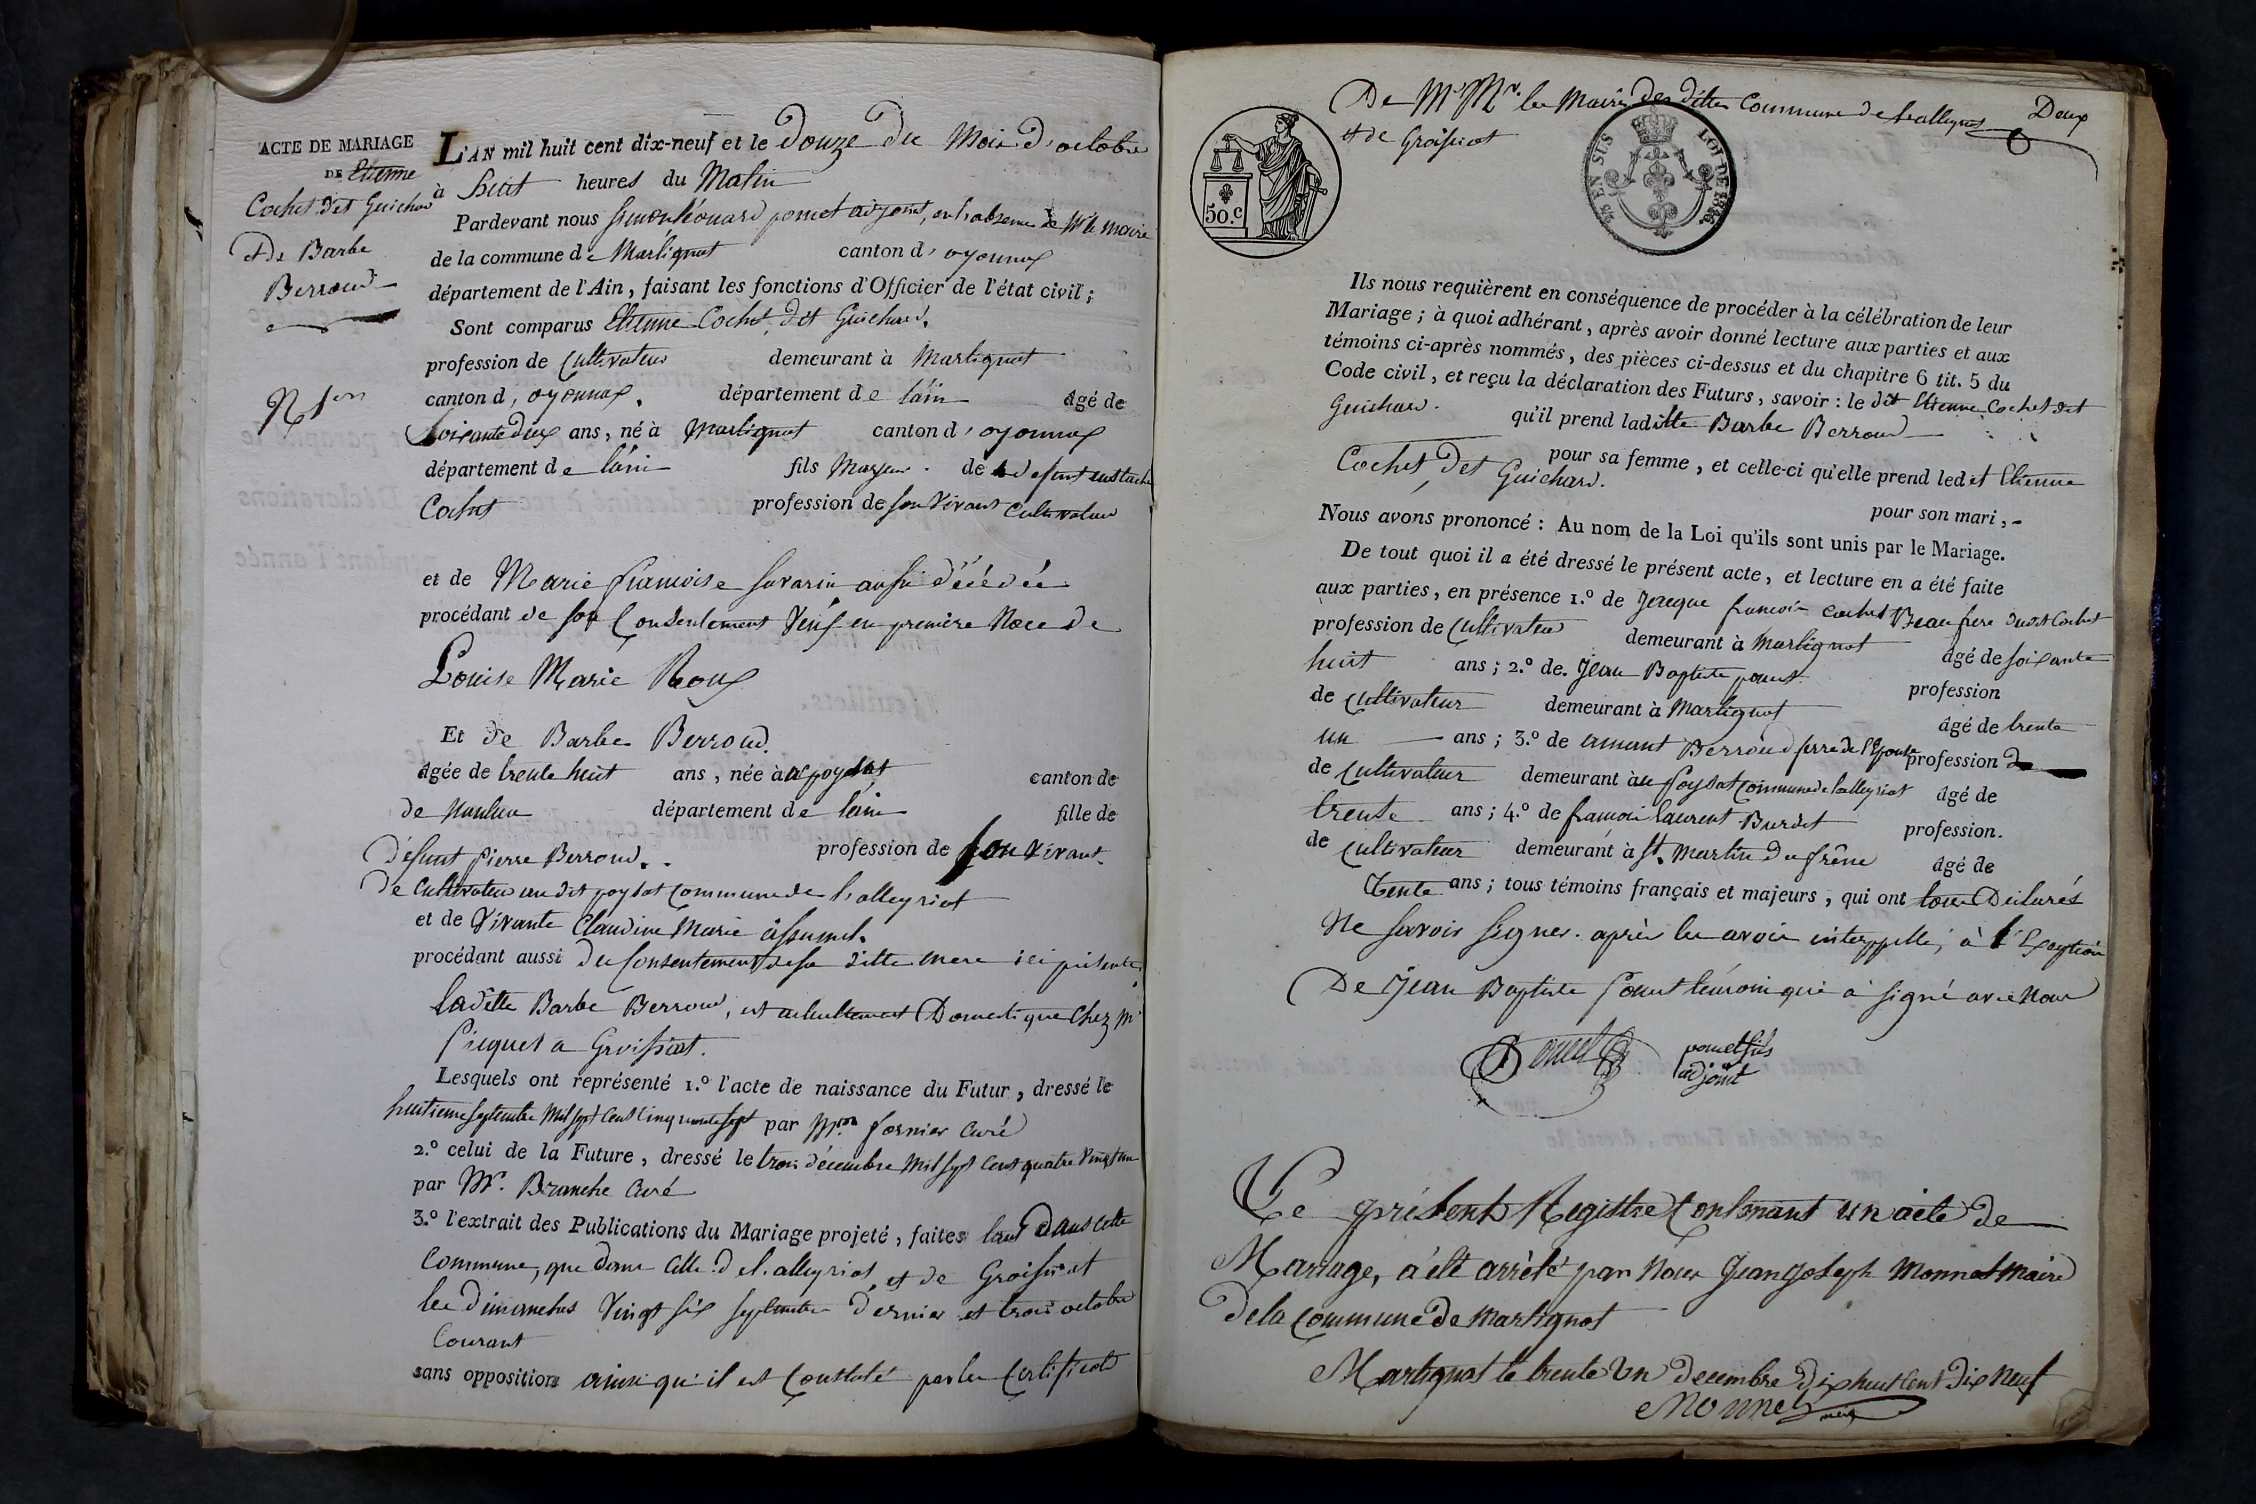 ACTE DE MARIAGE
DE Etienne
Cochet dit Guichard
et De Barbe
Berroud
N 1er
L'AN mil huit cent dix-neuf et le Douze Du Mois D'octobre
à huit heures du Matin
Pardevant nous Simon léonard pomet adjoint, en l'absence de Mr le maire
de la commune de Martignat canton d'oyonnax
département de l'Ain, faisant les fonctions d'Officier de l'état civil;
Sont comparus Etienne Cochet dit Guichard.
profession de Cultivateur demeurant à Martignat
canton d'oyonnax. département de l'ain âgé de
Soixante deux ans, né à Martignat canton d'oyonnax
département de l'ain fils Majeur de defunt eustache
Cochet profession de son vivant Cultivateur
et de Marie francoise Savarin aussi décédée
procédant de son Consentement Veuf en première Noce de
Louise Marie Roux
Et de Barbe Berroud.
âgée de trente huit ans, née au poysat canton de
de Nantua département de l'ain fille de
défunt pierre Berroud. profession de son vivant
De Cultivateur au dit poysat Commune de l'alleyriat
et de Vivante Claudine Marie
procédant aussi du Consentement de sa ditte mere ici présente,
laditte Barbe Berroud, est actuellement Domestique chez Mr
Piquet a Groissiat.
Lesquels ont représenté 1.º l'acte de naissance du Futur, dressé le
huitieme septembre Mil sept Cent Cinquante sept par Mr fornier Curé
2.º celui de la Future, dressé le trois décembre Mil sept Cent quatre Vingt un
par Mr. Branche Curé
3.º l'extrait des Publications du Mariage projeté, faites tant dans cette
Commune, que dans Celle de l'alleyriat et de Groissiat
les Dimanches Vingt six septembre dernier et trois octobre
Courant
sans opposition ainsi qu'il est Constaté par les Certificats
De Mr Mrs. les Maires des dittes Commune de l'alleyriat Deux
et de Groissiat
50.c
25 EN SUS LOI DE 1816.
Ils nous requièrent en conséquence de procéder à la célébration de leur
Mariage; à quoi adhérant, après avoir donné lecture aux parties et aux
témoins ci-après nommés, des pièces ci-dessus et du chapitre 6 tit. 5 du
Code civil, et reçu la déclaration des Futurs, savoir: le dit Etienne Cochet dit
Guichard. qu'il prend laditte Barbe Berroud
pour sa femme, et celle-ci qu'elle prend ledit Etienne
Cochet dit Guichard.
pour son mari,
Nous avons prononcé: Au nom de la Loi qu'ils sont unis par le Mariage.
De tout quoi il a été dressé le présent acte, et lecture en a été faite
aux parties, en présence 1.º de Jacque francois Cochet Beau frere dudit Cochet
profession de Cultivateur demeurant à Martignat âgé de soixante
huit ans; 2.º de Jean Baptiste pomet profession
de Cultivateur demeurant à Martignat âgé de trente
un ans; 3.º de amant Berroud frere de l'Epouse profession de
de Cultivateur demeurant au Poysat Commune de l'alleyriat âgé de
trente ans; 4.º de francois laurent Burdet profession.
de Cultivateur demeurant à St. Martin du frêne âgé de
trente ans; tous témoins français et majeurs, qui ont tous Déclarés
Ne savoir signer après les avoir interppellé, à l'Exception
De Jean Baptiste Pomet témoin qui a signé avec Nous
Pomet pomet
adjoint
Ce présent Registre Contenant un acte de
Mariage, a été arrêté par Nous Jean Joseph Monnet Maire
de la Commune de Martignat
Martignat le trente Un decembre dix huit Cent Dix Neuf
Monnet